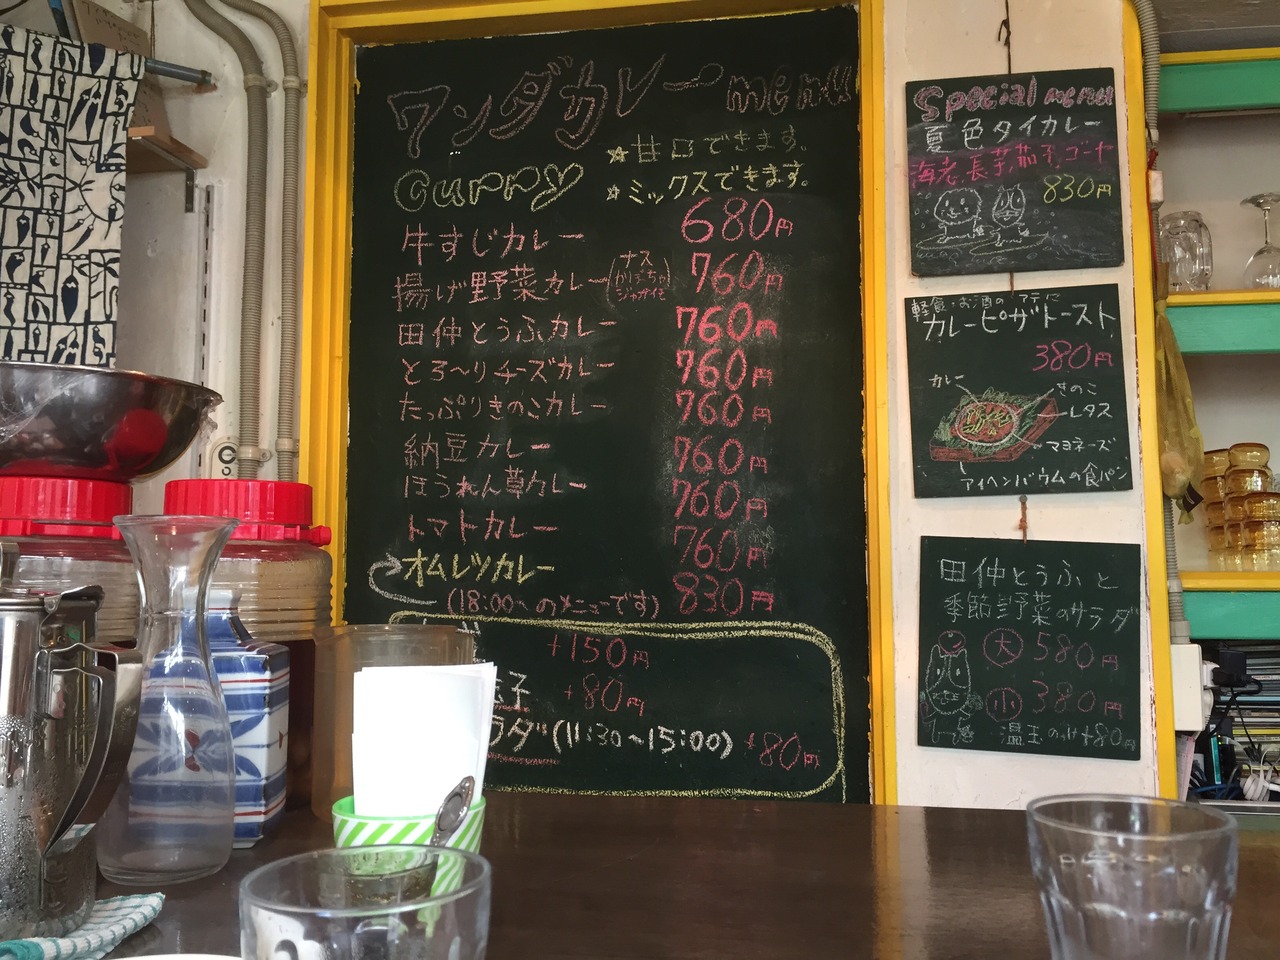 ワンダカレー menu
☆甘口できます。
Curry
☆ミックスできます。
牛すじカレー 680円
揚げ野菜カレー (ナス かぼちゃ ジャガイモ) 760円
田仲とうふカレー 760円
とろ〜りチーズカレー 760円
たっぷりきのこカレー 760円
納豆カレー 760円
ほうれん草カレー 760円
トマトカレー 760円
オムレツカレー 830円
(18:00〜のメニューです)
+150円
玉子 +80円
ラダ (11:30〜15:00) +80円
Special menu
夏色タイカレー
海老、長芋、茄子、ゴーヤ
830円
軽食・お酒のアテに
カレーピザトースト
380円
カレー
きのこ
レタス
マヨネーズ
アイヘンバウムの食パン
田仲とうふと
季節野菜のサラダ
大 580円
小 380円
温玉のけ+80円